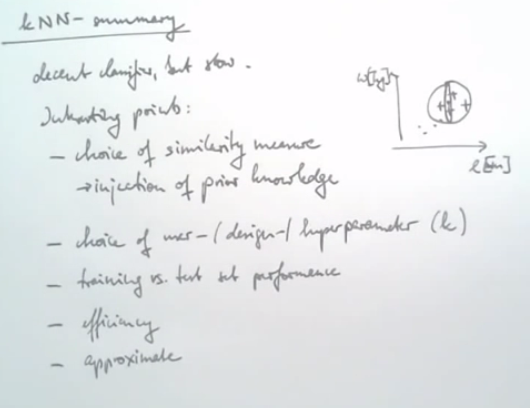 kNN - summary
decent classifier, but slow.
Interesting points:
- choice of similarity measure
→ injection of prior knowledge
- choice of user-/design-/hyperparameter (k)
- training vs. test set performance
- efficiency
- approximate
w[kg]
l[cm]